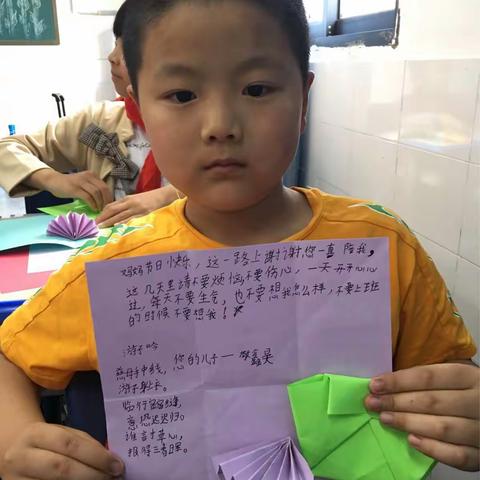 妈妈节日快乐，这一路上谢谢您一直陪我，
这几天里请不要烦恼不要伤心，一天开开心心
过，每天不要生气，也不要想我怎么样，不要上班
的时候不要想我！
游子吟
您的儿子一
慈母手中线，
游子身上衣。
临行密密缝，
意恐迟迟归。
谁言寸草心，
报得三春晖。